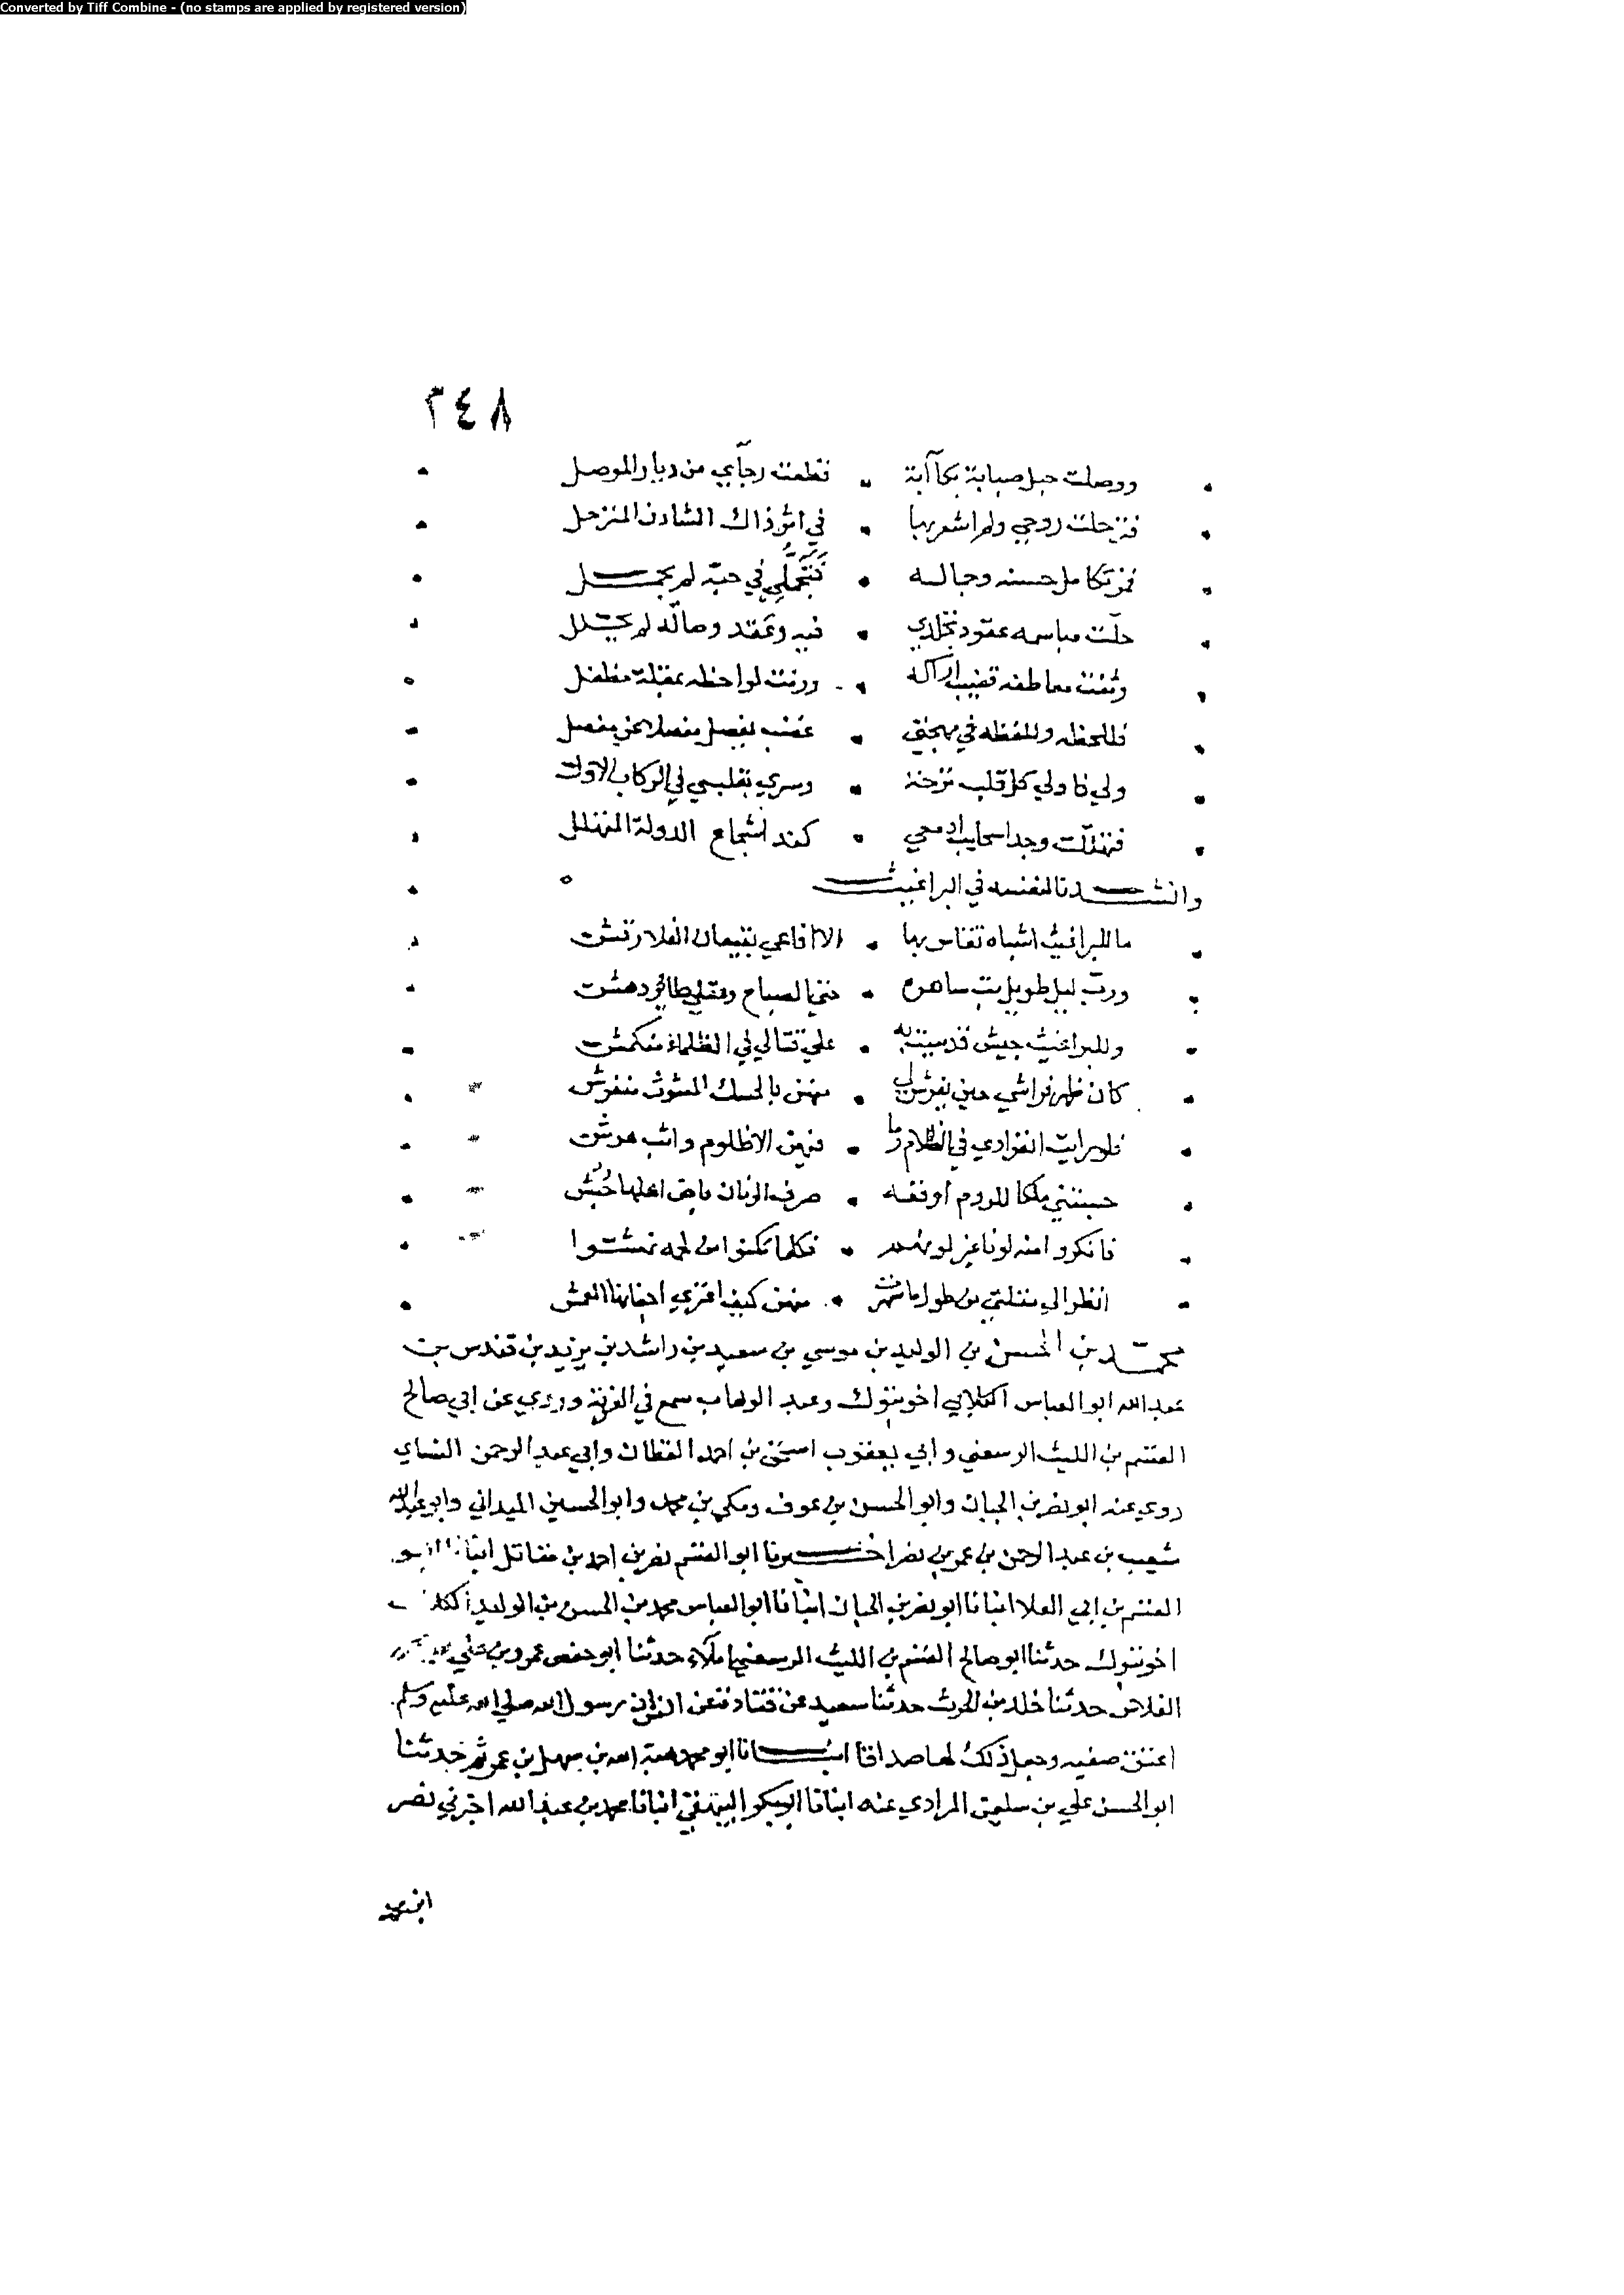 Converted by Tiff Combine - (no stamps are applied by registered version)
٣٤٨
ووصلت حبل صبابة بكآبة . قطعت رجآي من ديار الموصل
فتزحلت روحي ولم اشعر بها . في اثر ذاك الشادن المتزحل
قمر تكامل حسنه وجماله . فتجملي في حبه لم يجمل
حلّت مباسمه عقود تجلدي . فيه وعقد وصاله لم يحلل
وثنت معاطفه قضيب اراكه . ورنت لواحظه بمقلة مطفل
فللحظه وللفظه في مهجتي . عضب يفصل مفصلا عن مفصل
ولي فاولي كل قلب ترحة . وسري بقلبي في الركاب الاول
فتهللت وجدا سحايب ادمعي . كف اشجاع الدولة المتهلل
وانشدنا لنفسه في البراغيث
ما للبراغيث اشباه تقاس بها . الا افاعي بقيعان الفلا رقش
ورب ليل طويل بت ساهره . حتي الصباح وعقلي طاير دهش
وللبراغيث جيش قد به . علي قتالي في الظلماء منكمش
كان ظهر فراشي حين يفرش لي . منهن بالحسك المبثوث منفرش
فلو رايت انفرادي في الظلام وما . فيهن الا ظلوم واثب هرش
حسبتني ملكا للروم اوقفه . صرف الزمان بارض اهلها حبش
فانكروا منه لونا غير لونهم . فكلما تمكنوا من لحمه نهشوا
انظر الي مقلتي من طول ما سهرت . منهن كيف اعتري اجفانها العمش
محمد بن الحسن بن الوليد بن موسي بن سعيد بن راشد بن يزيد بن قندس بن
عبد الله ابو العباس الكلابي اخو تبوك وعبد الوهاب سمع في القرية وروي عن ابي صالح
القسم بن الليث الرسعني وابي يعقوب اسحق بن احمد القطان وابي عبد الرحمن النساي
روي عنه ابو نصر بن الجبان وابو الحسن بن عوف ومكي بن محمد وابو الحسين الميداني وابو عبد الله
شعيب بن عبد الرحمن بن عمر بن نصر اخبرنا ابو القسم نصر بن احمد بن مقاتل انبانا ابو
القسم بن ابي العلا انبانا ابو نصر بن الجبان انبانا ابو العباس محمد بن الحسن بن الوليد الكلابي
اخو تبوك حدثنا ابو صالح القسم بن الليث الرسعني املاء حدثنا ابو حفص عمرو بن علي
الفلاس حدثنا خلد بن الحرث حدثنا سعيد عن قتادة عن انس ان رسول الله صلي الله عليه وسلم
اعتق صفيه وجعل ذلك لها صداقا انبانا ابو محمد هبة الله بن سهل بن عمر ثم حدثنا
ابو الحسن علي بن سليمن المرادي عنه انبانا ابو بكر البيهقي انبانا محمد بن عبد الله اخبرني نصر